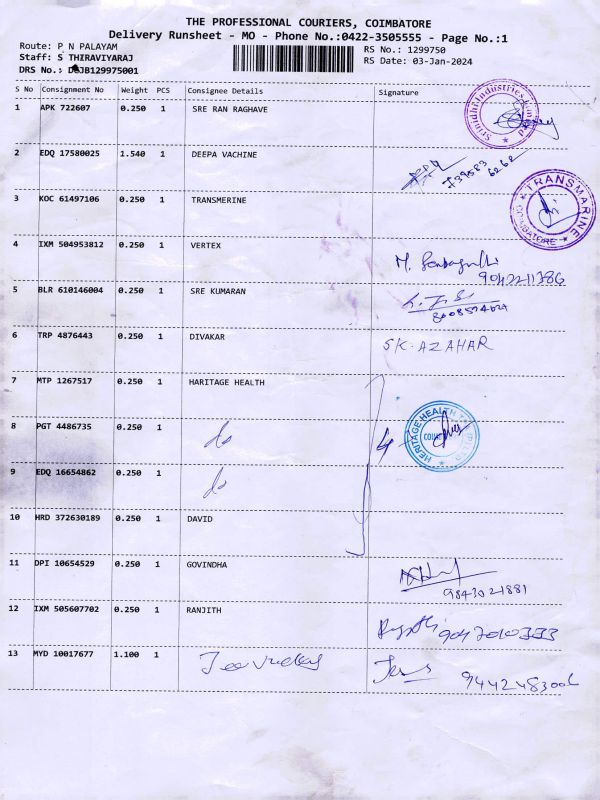 THE PROFESSIONAL COURIERS, COIMBATORE
Delivery Runsheet - MO - Phone No.:0422-3505555 - Page No.:1
Route: P N PALAYAM
RS No.: 1299750
Staff: S THIRAVIYARAJ
RS Date: 03-Jan-2024
DRS No.: DSJB129975001
S No Consignment No Weight PCS Consignee Details Signature
1 APK 722607 0.250 1 SRE RAN RAGHAVE
Srinidhi Industries
2 EDQ 17580025 1.540 1 DEEPA VACHINE
3 KOC 61497106 0.250 1 TRANSMERINE
TRANSMARINE COIMBATORE
4 IXM 504953812 0.250 1 VERTEX
5 BLR 610146004 0.250 1 SRE KUMARAN
6 TRP 4876443 0.250 1 DIVAKAR SK. AZAHAR
7 MTP 1267517 0.250 1 HARITAGE HEALTH
8 PGT 4486735 0.250 1 do
HERITAGE HEALTH
9 EDQ 16654862 0.250 1 do
10 HRD 372630189 0.250 1 DAVID
11 DPI 10654529 0.250 1 GOVINDHA
9843021881
12 IXM 505607702 0.250 1 RANJITH
13 MYD 10017677 1.100 1